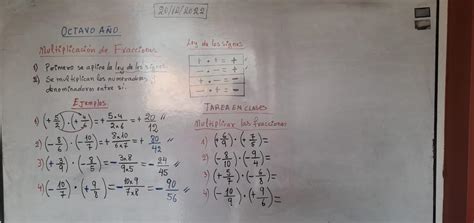 26/12/2022
OCTAVO AÑO
Multiplicación de Fracciones
1) Primero se aplica la ley de los signos
2) Se multiplican los numeradores y denominadores entre si.
Ejemplos
1) (+5/2)·(+4/6)=+5x4/2x6=+20/12 //
2) (-8/6)·(-10/7)=+8x10/6x7=+80/42 //
3) (+3/9)·(-8/5)=-3x8/9x5=-24/45 //
4) (-10/7)·(+9/8)=-10x9/7x8=-90/56 //
Ley de los signos
+ · + = +
- · - = +
+ · - = -
- · + = -
TAREA EN CLASES
Multiplicar las fracciones
1) (+6/9)·(+7/8)=
2) (-8/10)·(-9/4)=
3) (+5/7)·(-6/8)=
4) (-10/9)·(+9/6)=